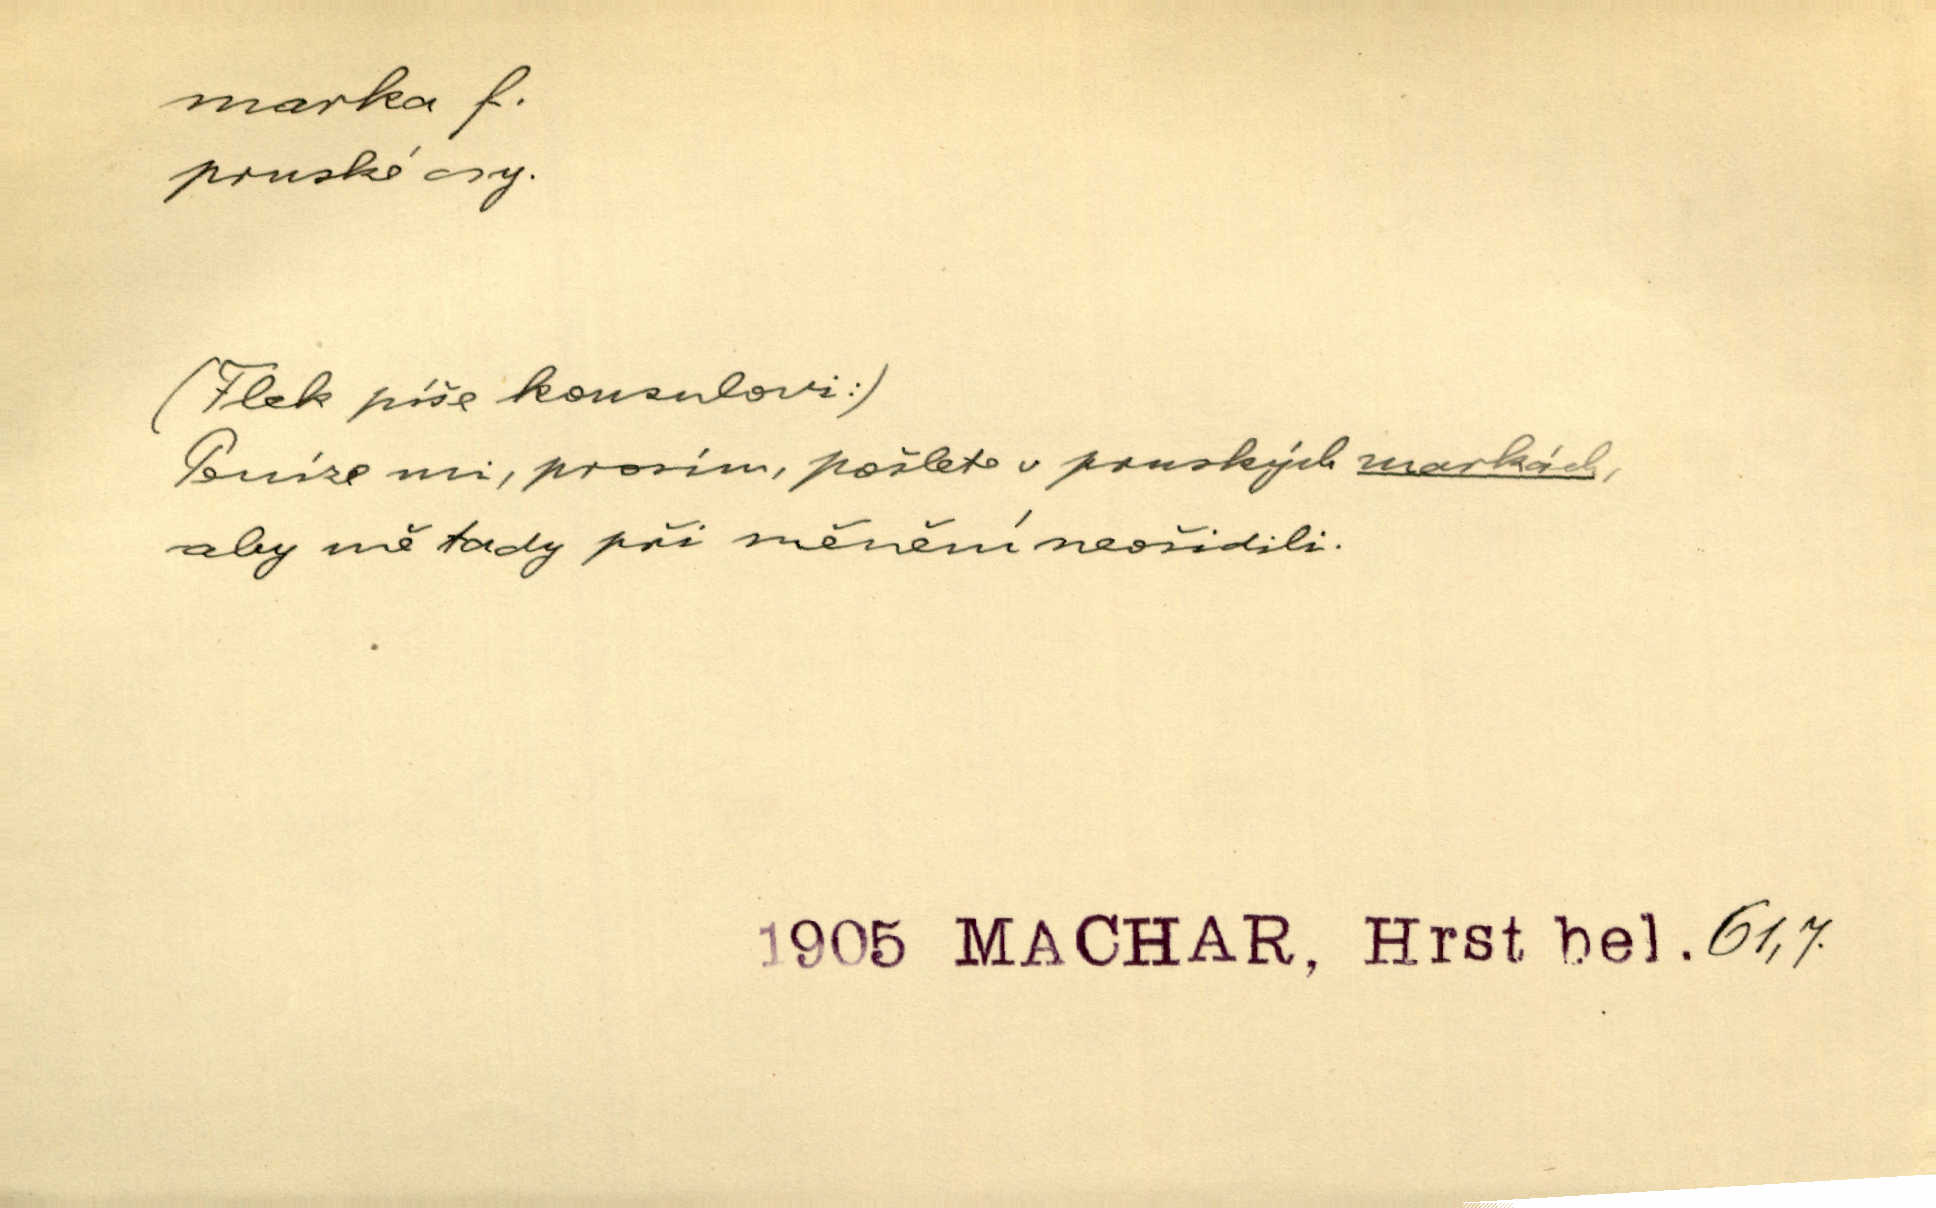 marka f.
pruské
(Flek píše konsulovi:)
Peníze mi, prosím, pošlete v pruských markách,
aby mě tady při měnění neošidili.
1905 MACHAR, Hrst bel. 61,7.